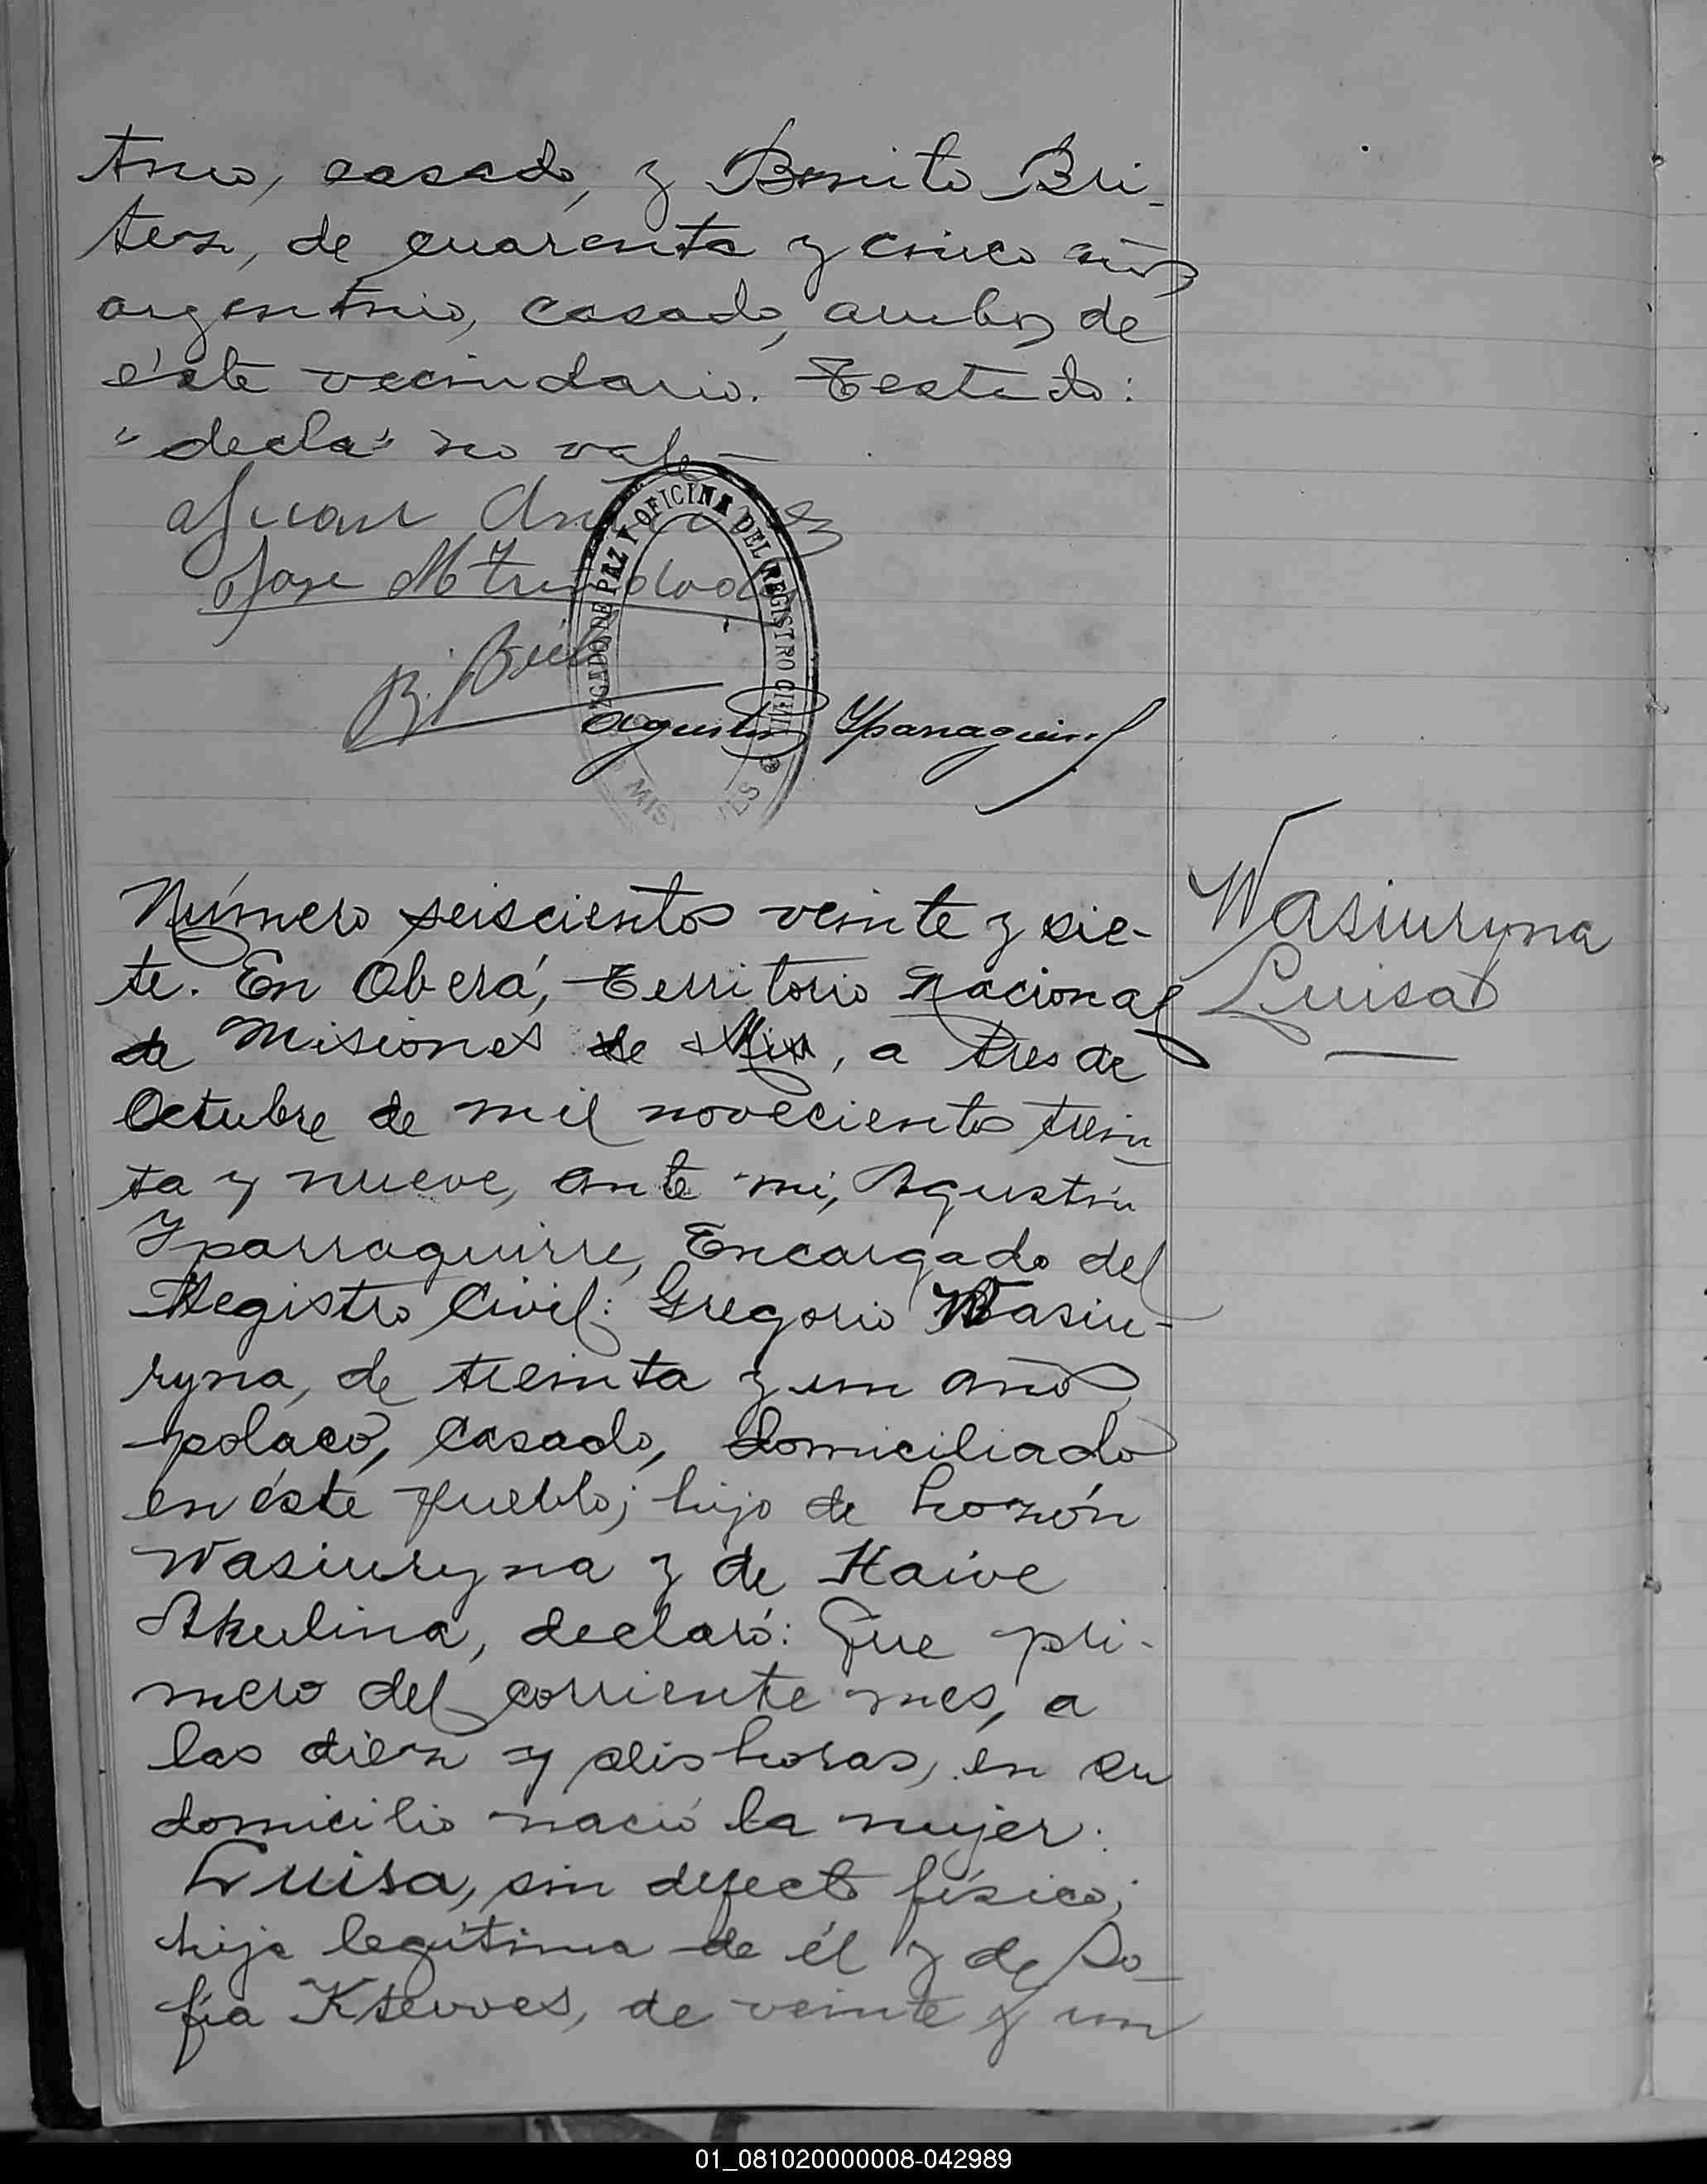 tino, casado, y Benito Bri-
tez, de cuarenta y cinco años
argentino, casado, ambos de
éste vecindario. Testado:
"decla" no vale—
Juan
Jose M Trinidad
B. Brit
JUZGADO DE PAZ Y OFICINA DEL REGISTRO CIVIL
MISIONES
Agustin Yparraguirre
Número seiscientos veinte y sie-
te. En Oberá, Territorio Nacional
de Misiones de Mis, a tres de
Octubre de mil novecientos trein
ta y nueve, ante mi, Agustín
Yparraguirre, Encargado del
Registro Civil: Gregorio Wasiu-
ryna, de treinta y un años
polaco, casado, domiciliado
en éste pueblo; hijo de
Wasiuryna y de Haive
Akulina, declaró: Que pri-
mero del corriente mes, a
las diez y seis horas, en su
domicilio nació la mujer:
Luisa, sin defecto físico;
hija legítima de él y de So-
fía Ksewes, de veinte y un
Wasiuryna
Luisa
01_081020000008-042989